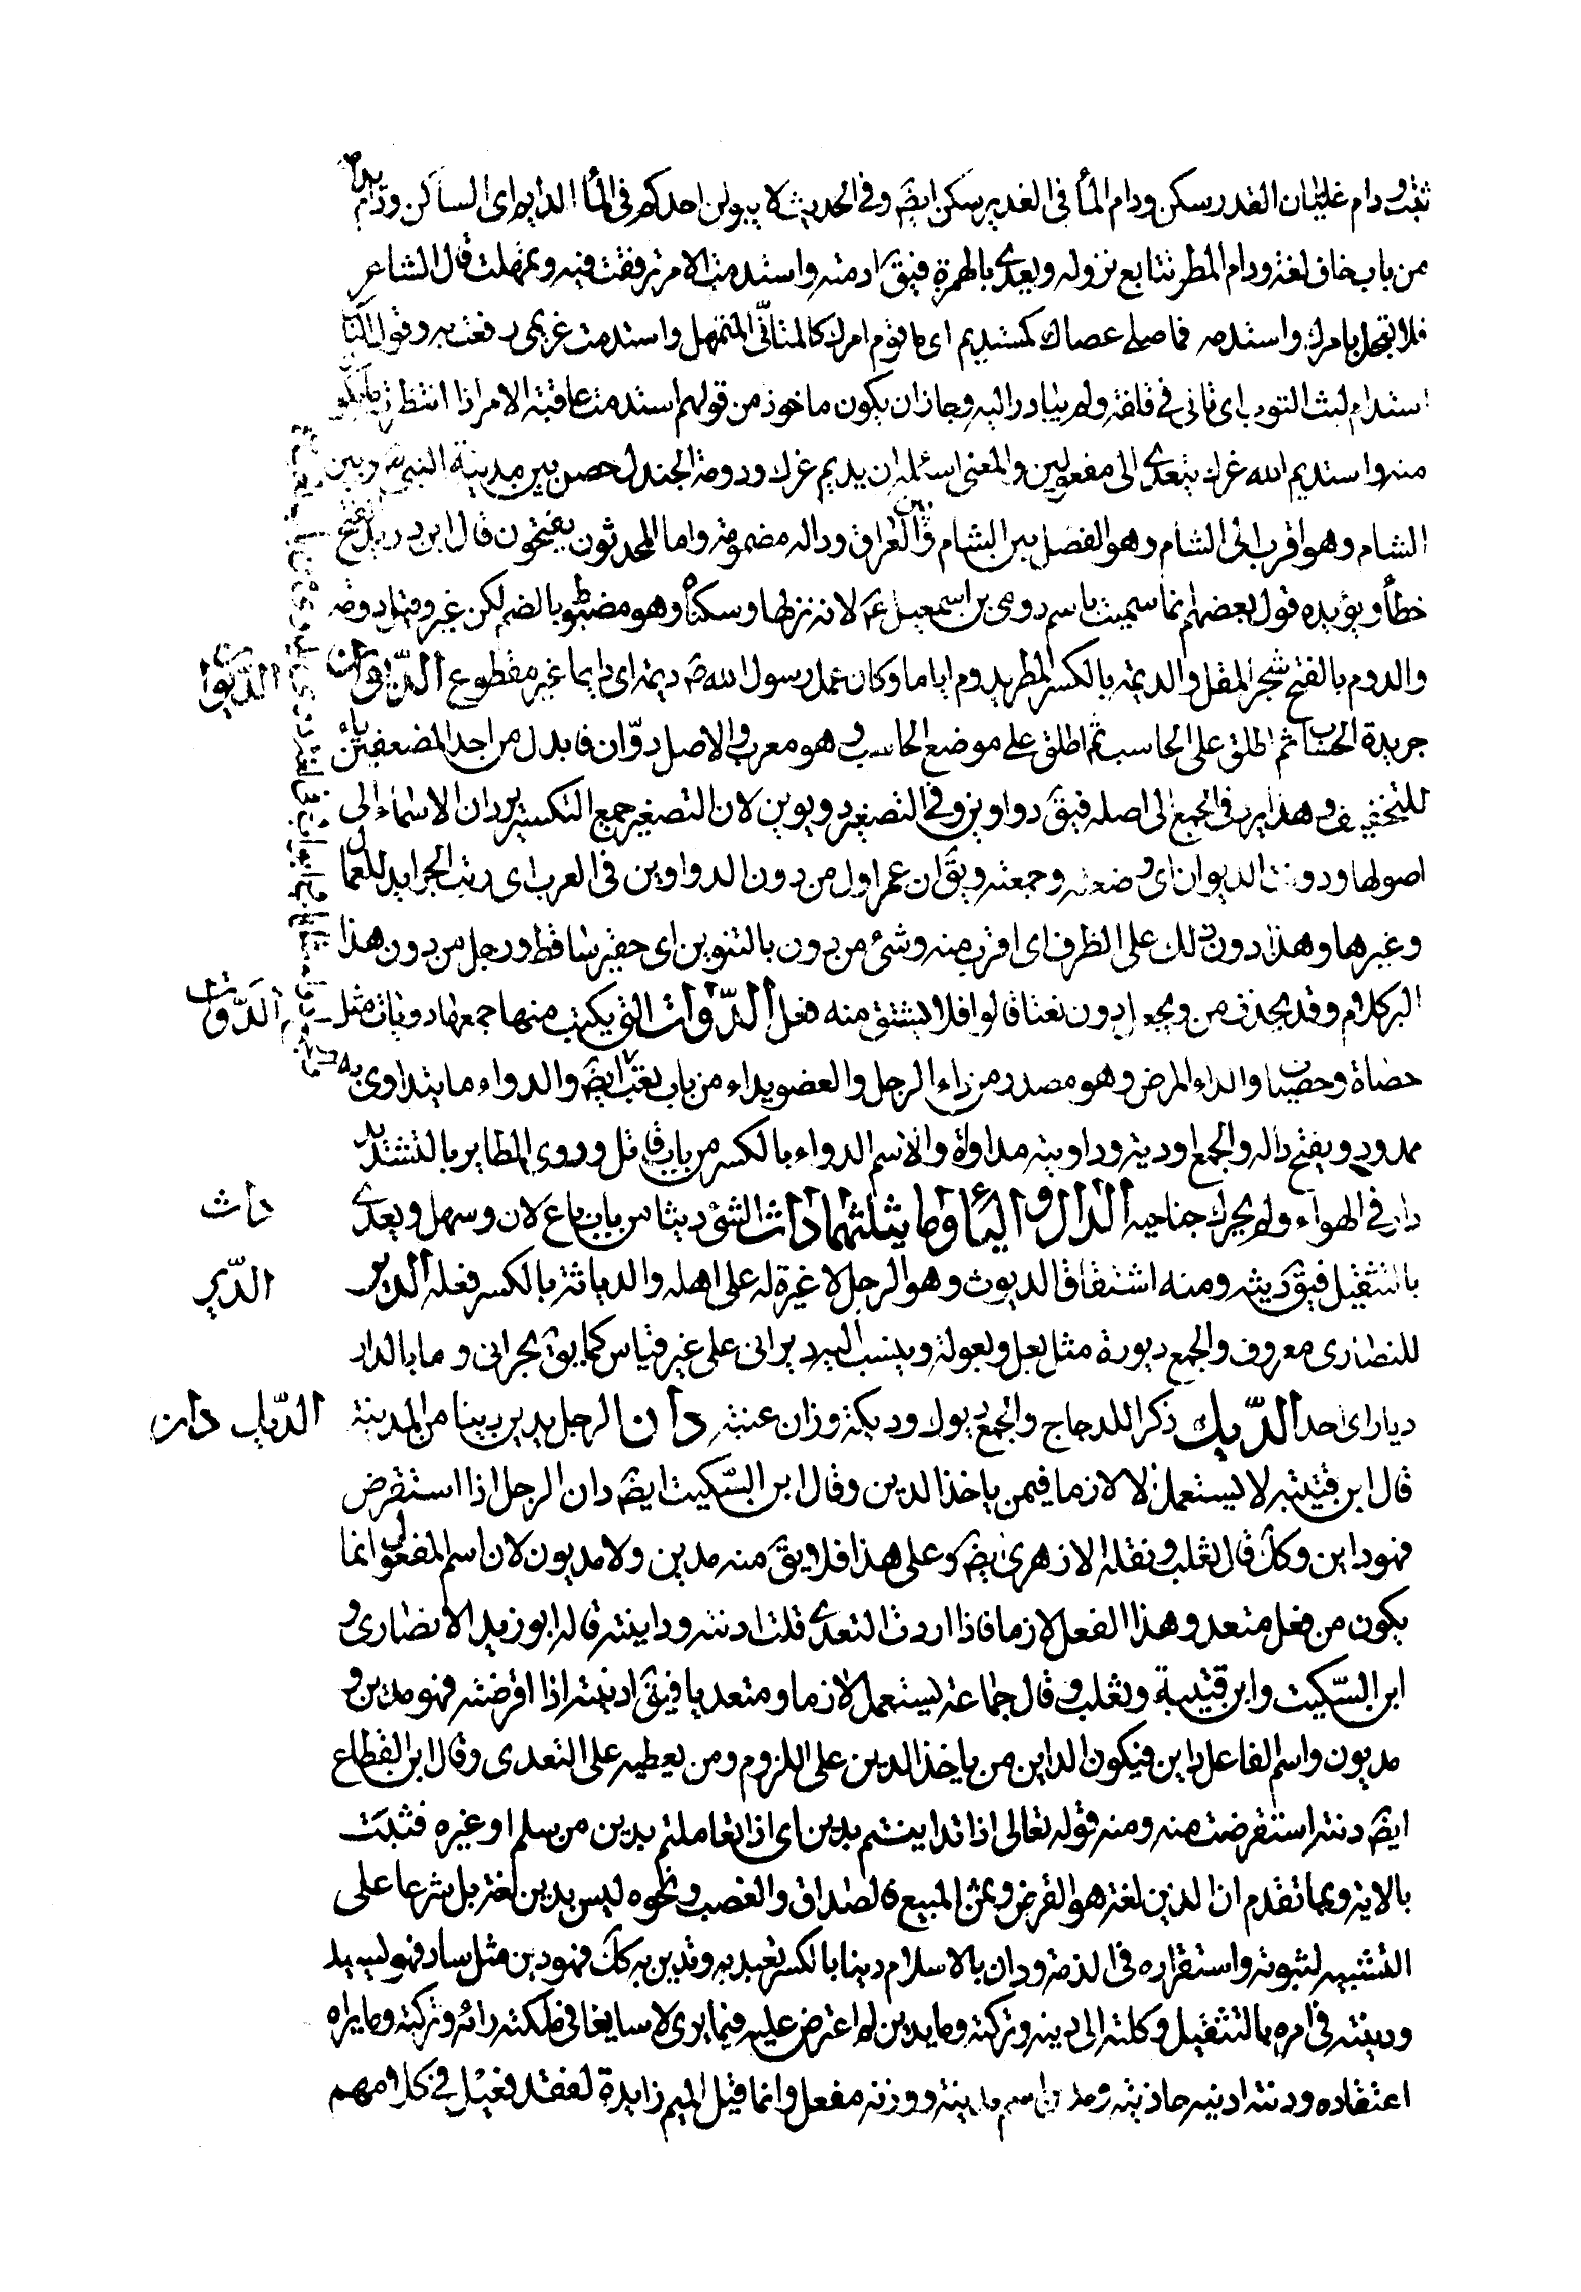 ثبت ودام غليان القدر سكن ودام الماء فى الغدير سكن ايضً وفى الحديث لا يبولن احدكم فى الماء الدايم اى الساكن ودام يدام
من باب خاف لغة ودام المطر تتابع نزوله ويعدى بالهمزة فيقَ ادمته واستدمت الامر ترفقت فيه وتمهلت قال الشاعر
فلا تعجل بامرك واستدمه فما صلى عصاك كمستديم اى ما قوم امرك كالمتأنّى المتمهل واستدمت غريمى رفقت به وقول الناس
استدام لبث الثوب اى تانى فى قلفه ولم يبادر اليه وجاز ان يكون ماخوذ من قولهم استدمت عاقبة الامر اذا انتظرت ما يكون
منه واستديم الله عزك يتعدى الى مفعولين والمعنى اسئله ان يديم عزك ودومة الجندل حصن بين مدينة النبى صَ وبين
الشام وهو اقرب الى الشام وهو الفصل بين الشام والعراق وداله مضمومة واما المحدثون يفتحون قال ابن دريد الفتح
خطأ ويؤيده قول بعضهم انما سميت باسم دومى بن اسمعيل عَ لانه نزلها وسكنها وهو مضبوط بالضم لكن غير وقيل دومة
والدوم بالفتح شجر المقل والديمة بالكسر المطر يدوم اياما وكان عمل رسول الله صَ ديمة اى دايما غير مقطوع الدّيوان
جريدة الحساب ثم اطلق على الحاسب ثم اطلق على موضع الحاسب وهو معرب والاصل دوّان فابدل من احد المضعفين ياء
للتخفيف و هذا يرد فى الجمع الى اصله فيقَ دواوين وفى التصغير دويوين لان التصغير جمع التكسير يردان الاسماء الى
اصولها ودونت الديوان اى وضعته وجمعته ويقَ ان عمر اول من دون الدواوين فى العرب اى رتب الجرايد للعمال
وغيرها وهذا دون ذلك على الظرف اى اقرب منه وشئ من دون بالتنوين اى حقير ساقط ورجل من دون هذا
اكثر كلام وقد يحذف من ويجعل دون نعتا قالوا فلا يشتق منه فعل الدّوات التى يكتب منها جمعها دويات مثل
حصاة وحصيات والداء المرض وهو مصدر من داء الرجل والعضو يداء من باب تعب ايضً والدواء ما يتداوى به
ممدود ويفتح داله والجمع ادوية وداويته مداواة والاسم الدواء بالكسر من باب قاتل ودوى الطاير بالتشديد
دار فى الهواء ولم يحرك جناحيه الدال والياء وما يثلثهما داث الشئ ديثا من باب باع لان وسهل ويعدى
بالتثقيل فيقَ ديثه ومنه اشتقاق الديوث وهو الرجل لا غيرة له على اهله والدياثة بالكسر فعله الدير
للنصارى معروف والجمع ديورة مثل بعل وبعولة وينسب اليه ديرانى على غير قياس كما يقَ بحرانى و ما بالدار
ديار اى احد الدّيك ذكر اللدجاج والجمع ديوك وديكة وزان عنبة دان الرجل يدين دينا من المدينة
قال ابن قتيبه لا يستعمل الا لازما فيمن ياخذ الدين وقال ابن السّكيت ايضً دان الرجل اذا استقرض
فهو داين وكك قال ثعلب ونقله الازهرى ايضً وعلى هذا فلا يقَ منه مدين ولا مديون لان اسم المفعول انما
يكون من فعل متعد وهذا الفعل لازم فاذا اردت التعدى قلت ادنته وداينته قاله ابو زيد الانصارى و
ابن السّكيت وابن قتيبة وثعلب وقال جماعة يستعمل لازما ومتعديا فيقَ ادينته اذا اقرضته فهو مدين و
مديون واسم الفاعل داين فيكون الداين من ياخذ الدين على اللزوم ومن يعطيه على التعدى وقال ابن القطاع
ايضً دنته استقرضت منه ومنه قوله تعالى اذا تداينتم بدين اى اذا تعاملتم بدين من سلم او غيره فثبت
بالاية وبما تقدم ان الدين لغة هو القرض وثمن المبيع فالصداق والغصب ونحوه ليس بدين لغة بل شرعا على
التشبيه لثبوته واستقراره فى الذمة ودان بالاسلام دينا بالكسر تعبد به وتدين به كك فهو دين مثل ساد فهو سيد
ودينته فى امره بالتثقيل وكلته الى دينه وتركته وما يدين لم اعترض عليه فيما يرى لا سايغا فى ملكته رائه وتركته وما يراه
اعتقاده ودنته ادينه جاذبته ومدين اسم مدينة ووزنه مفعل وانما قيل الميم زايدة لفقد فعيل فى كلامهم
الدّيوان
الدّوات
داث
الدّير
الدّيك دان